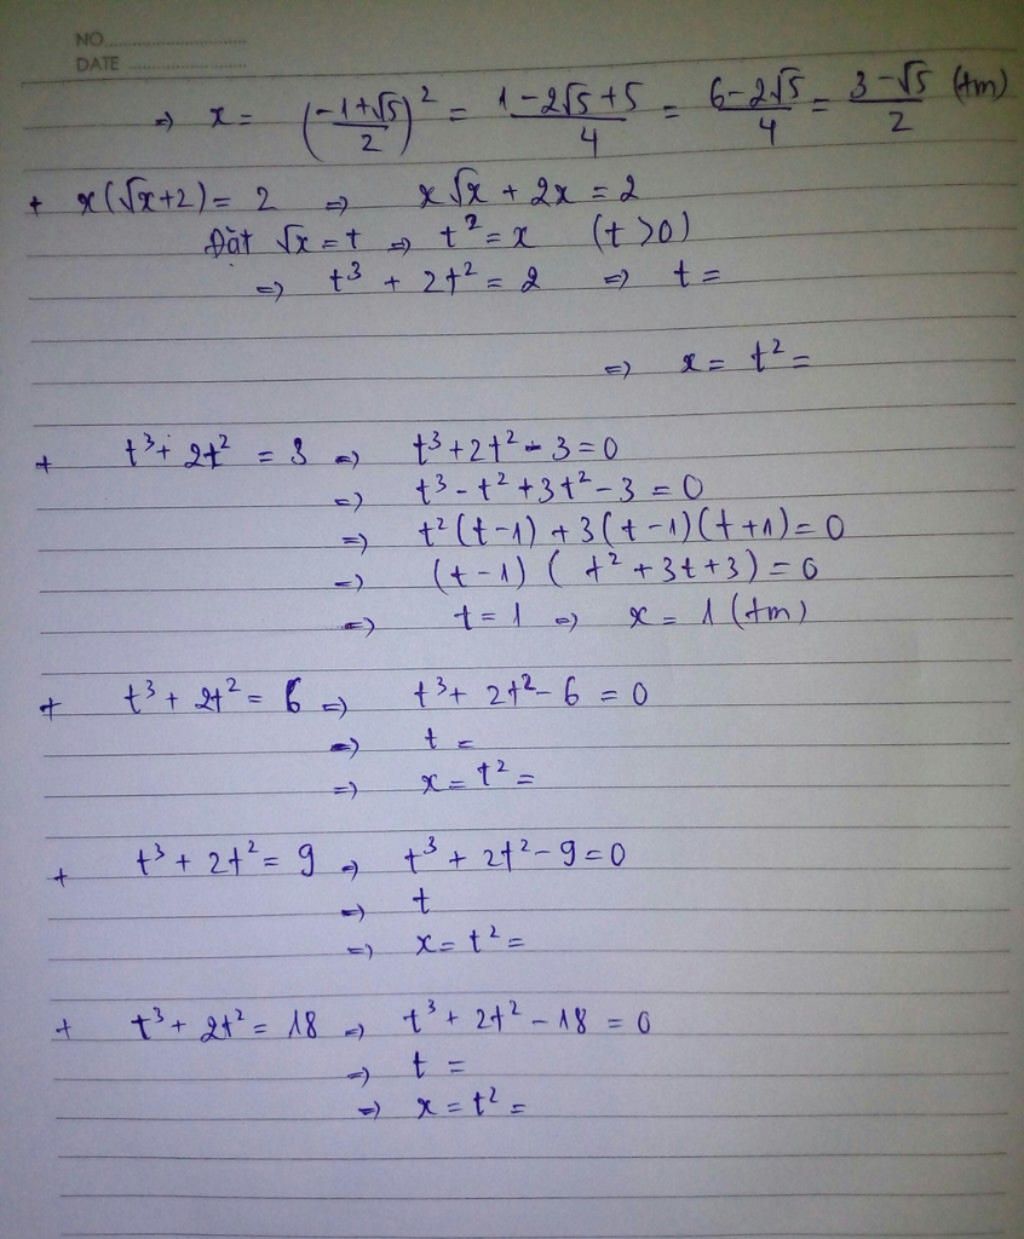 NO.
DATE
=> x = (-1+√5/2)² = 1-2√5+5/4 = 6-2√5/4 = 3-√5/2 (tm)
+ x(√x+2) = 2 => x√x + 2x = 2
Đặt √x = t => t² = x (t>0)
=> t³ + 2t² = 2 => t =
=> x = t² =
+ t³ + 2t² = 3 => t³+2t²-3=0
=> t³-t²+3t²-3=0
=> t²(t-1)+3(t-1)(t+1)=0
=> (t-1)(t²+3t+3)=0
=> t=1 => x = 1 (tm)
+ t³+2t²=6 => t³+2t²-6=0
=> t =
=> x = t² =
+ t³+2t²=9 => t³+2t²-9=0
=> t
=> x = t² =
+ t³+2t²=18 => t³+2t²-18=0
=> t =
=> x = t² =